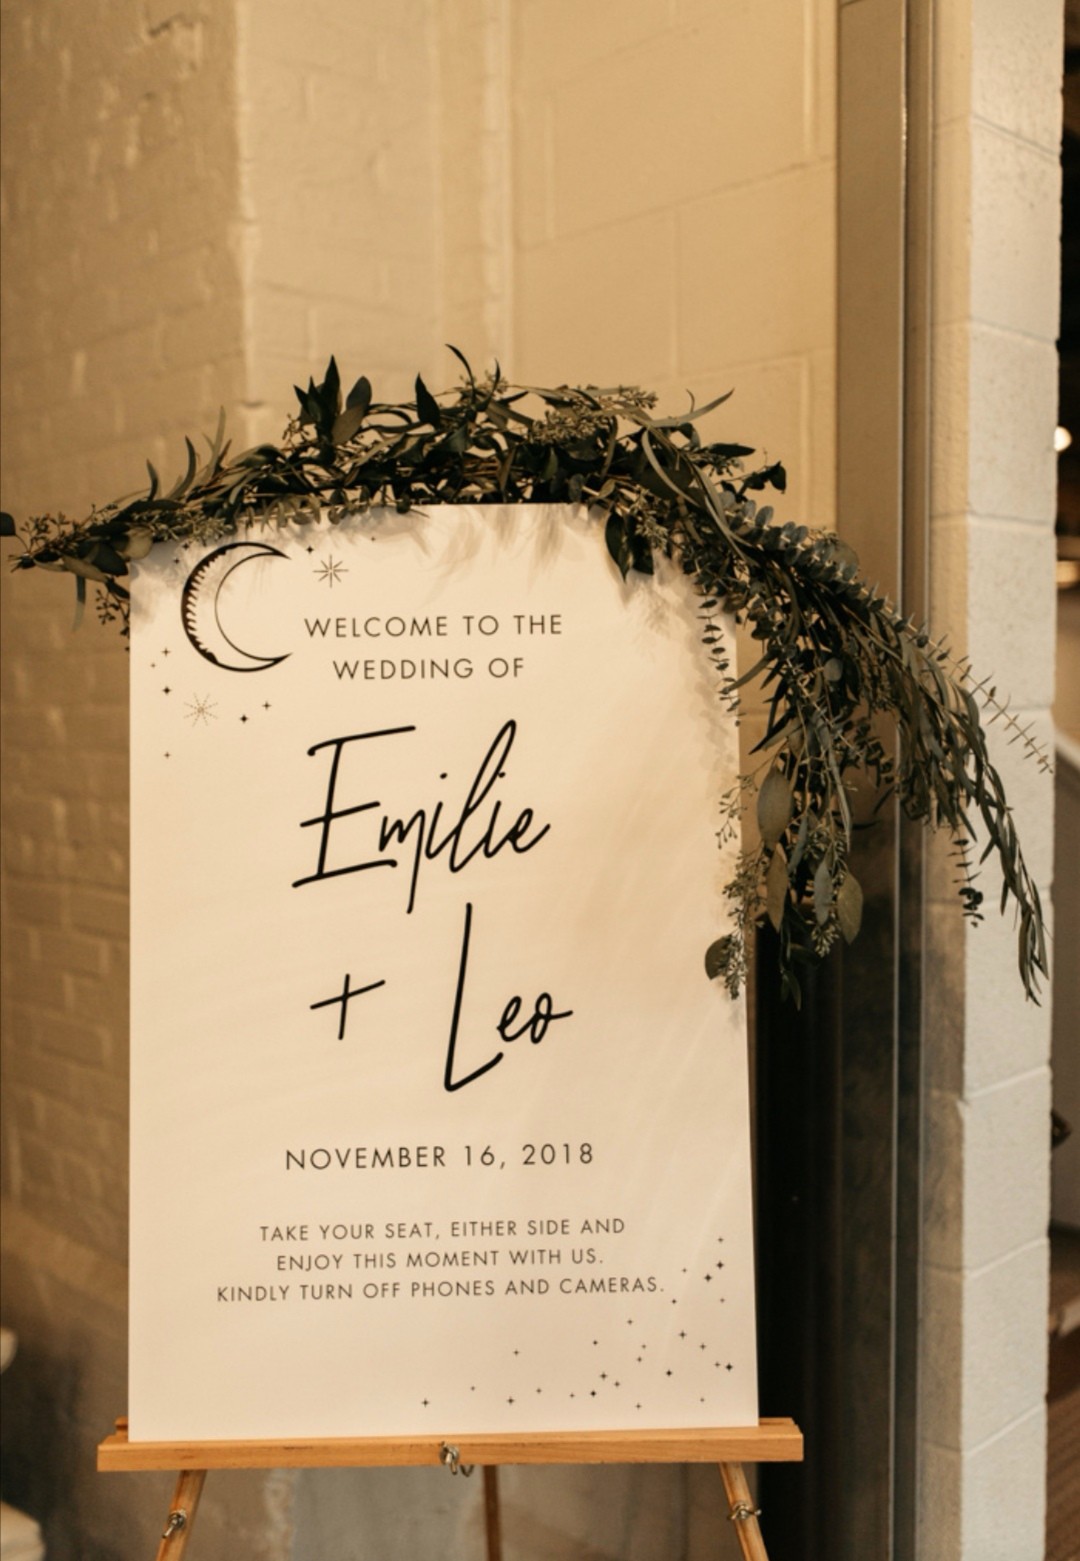 WELCOME TO THE
WEDDING OF
Emilie
+ Leo
NOVEMBER 16, 2018
TAKE YOUR SEAT, EITHER SIDE AND
ENJOY THIS MOMENT WITH US.
KINDLY TURN OFF PHONES AND CAMERAS.